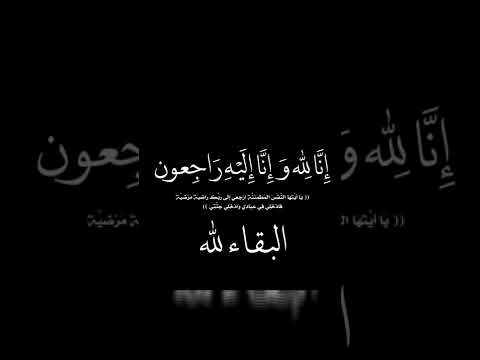 إِنَّا لِلّٰهِ وَ إِنَّا إِلَيْهِ رَاجِعون
(( يا ايتها النفس المطمئنة ارجعي الى ربك راضية مرضية
فادخلي في عبادي وادخلي جنتي ))
البقاء لله